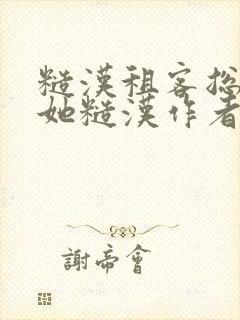 糙漢租客总
她糙漢作者
謝帝會